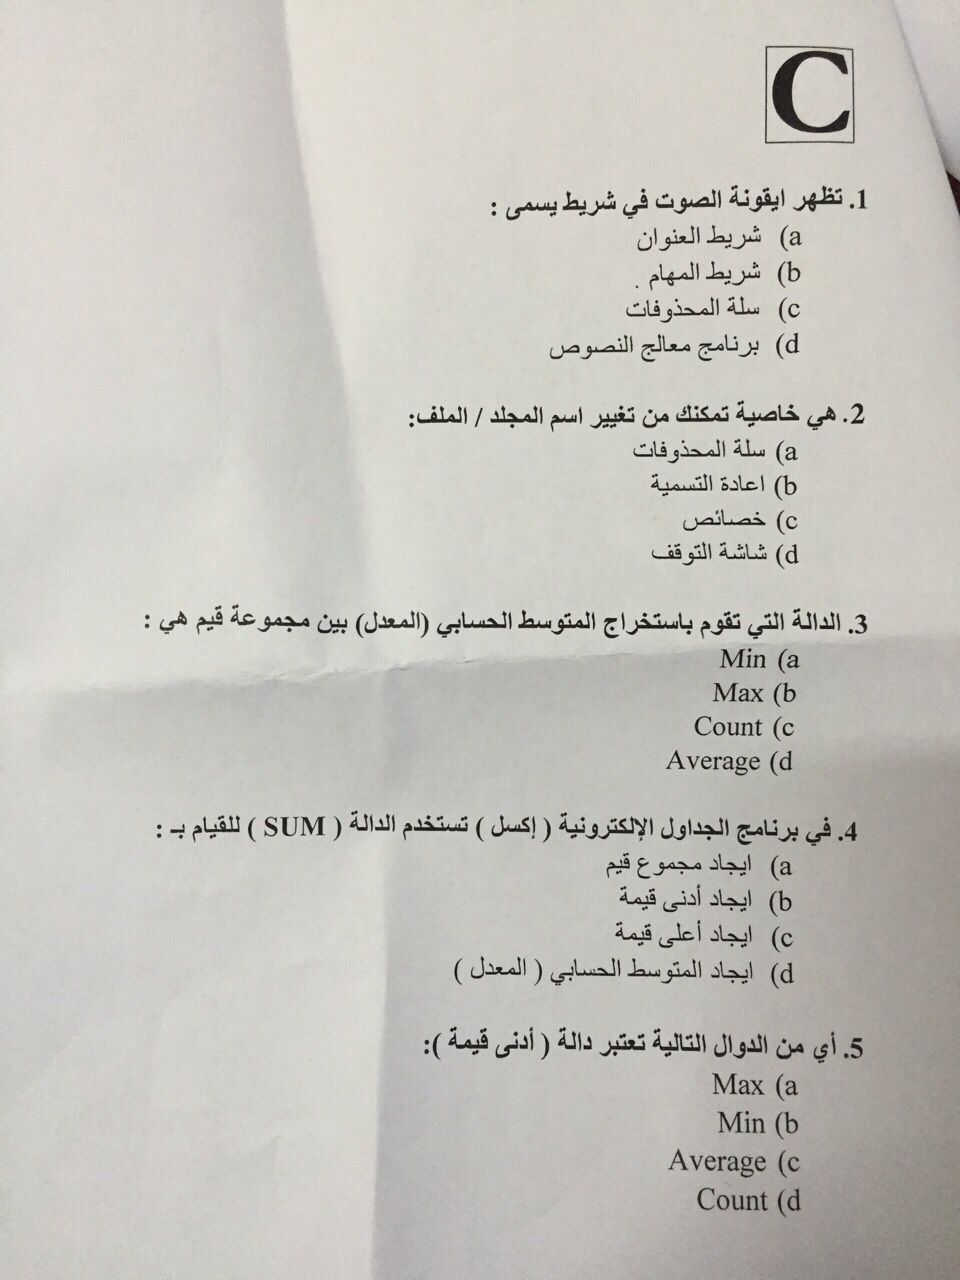 C
1. تظهر ايقونة الصوت في شريط يسمى :
a) شريط العنوان
b) شريط المهام .
c) سلة المحذوفات
d) برنامج معالج النصوص
2. هي خاصية تمكنك من تغيير اسم المجلد / الملف:
a) سلة المحذوفات
b) اعادة التسمية
c) خصائص
d) شاشة التوقف
3. الدالة التي تقوم باستخراج المتوسط الحسابي (المعدل) بين مجموعة قيم هي :
a) Min
b) Max
c) Count
d) Average
4. في برنامج الجداول الإلكترونية ( إكسل ) تستخدم الدالة ( SUM ) للقيام بـ :
a) ايجاد مجموع قيم
b) ايجاد أدنى قيمة
c) ايجاد أعلى قيمة
d) ايجاد المتوسط الحسابي ( المعدل )
5. أي من الدوال التالية تعتبر دالة ( أدنى قيمة ):
a) Max
b) Min
c) Average
d) Count